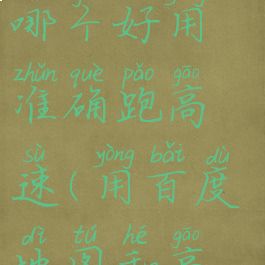 哪个好用
zhǔn què pǎo gāo
准确跑高
sù yòng bǎi dù
速(用百度
dì tú hé gāo
地图和高